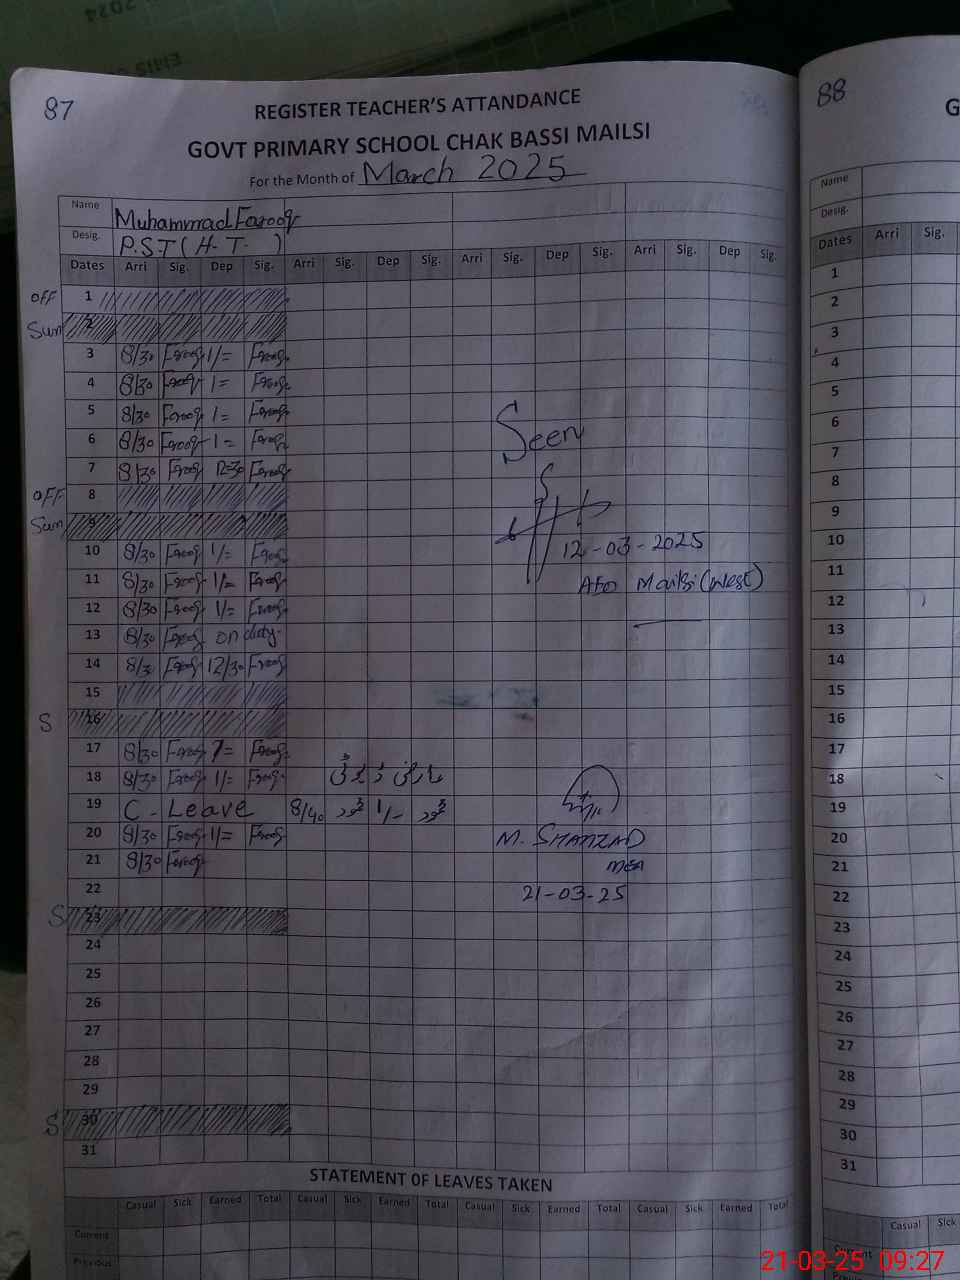 87
REGISTER TEACHER'S ATTANDANCE
GOVT PRIMARY SCHOOL CHAK BASSI MAILSI
For the Month of March 2025
Name Muhammad Farooq
Desig. P.S.T (H.T.)
Dates Arri Sig. Dep Sig. Arri Sig. Dep Sig. Arri Sig. Dep Sig. Arri Sig. Dep Sig.
OFF 1
Sun 2
3 8/30 Farooq 1/= Farooq
4 8/30 Farooq 1= Farooq
5 8/30 Farooq 1= Farooq
6 8/30 Farooq 1= Farooq
7 8/30 Farooq 12=30 Farooq
Seen
OFF 8
Sun 9
10 8/30 Farooq 1/= Farooq
12-03-2025
11 8/30 Farooq 1/= Farooq
Mailsi (west)
12 8/30 Farooq 1/= Farooq
13 8/30 Farooq on duty.
14 8/30 Farooq 12/30 Farooq
15
S 16
17 8/30 Farooq 1= Farooq
18 8/30 Farooq 1/= Farooq
19 C-Leave 8/40 1/-
20 8/30 Farooq 1/= Farooq
M. SHAHZAD
21 8/30 Farooq
MEA
22
21-03-25
S 23
24
25
26
27
28
29
S 30
31
STATEMENT OF LEAVES TAKEN
Casual Sick Earned Total Casual Sick Earned Total Casual Sick Earned Total Casual Sick Earned Total
Current
Previous
88
G
Name
Desig.
Dates Arri Sig.
1
2
3
4
5
6
7
8
9
10
11
12
13
14
15
16
17
18
19
20
21
22
23
24
25
26
27
28
29
30
31
Casual Sick
Current
21-03-25 09:27